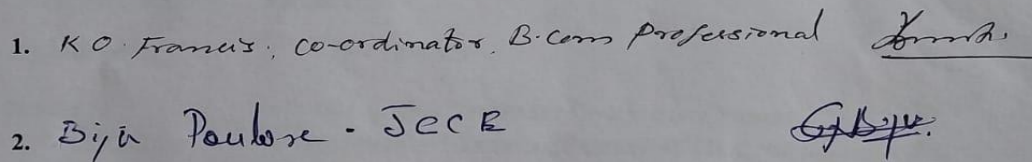 1. K O. Francis, co-ordinator, B.com Professional
2. Biju Paulose - JECE